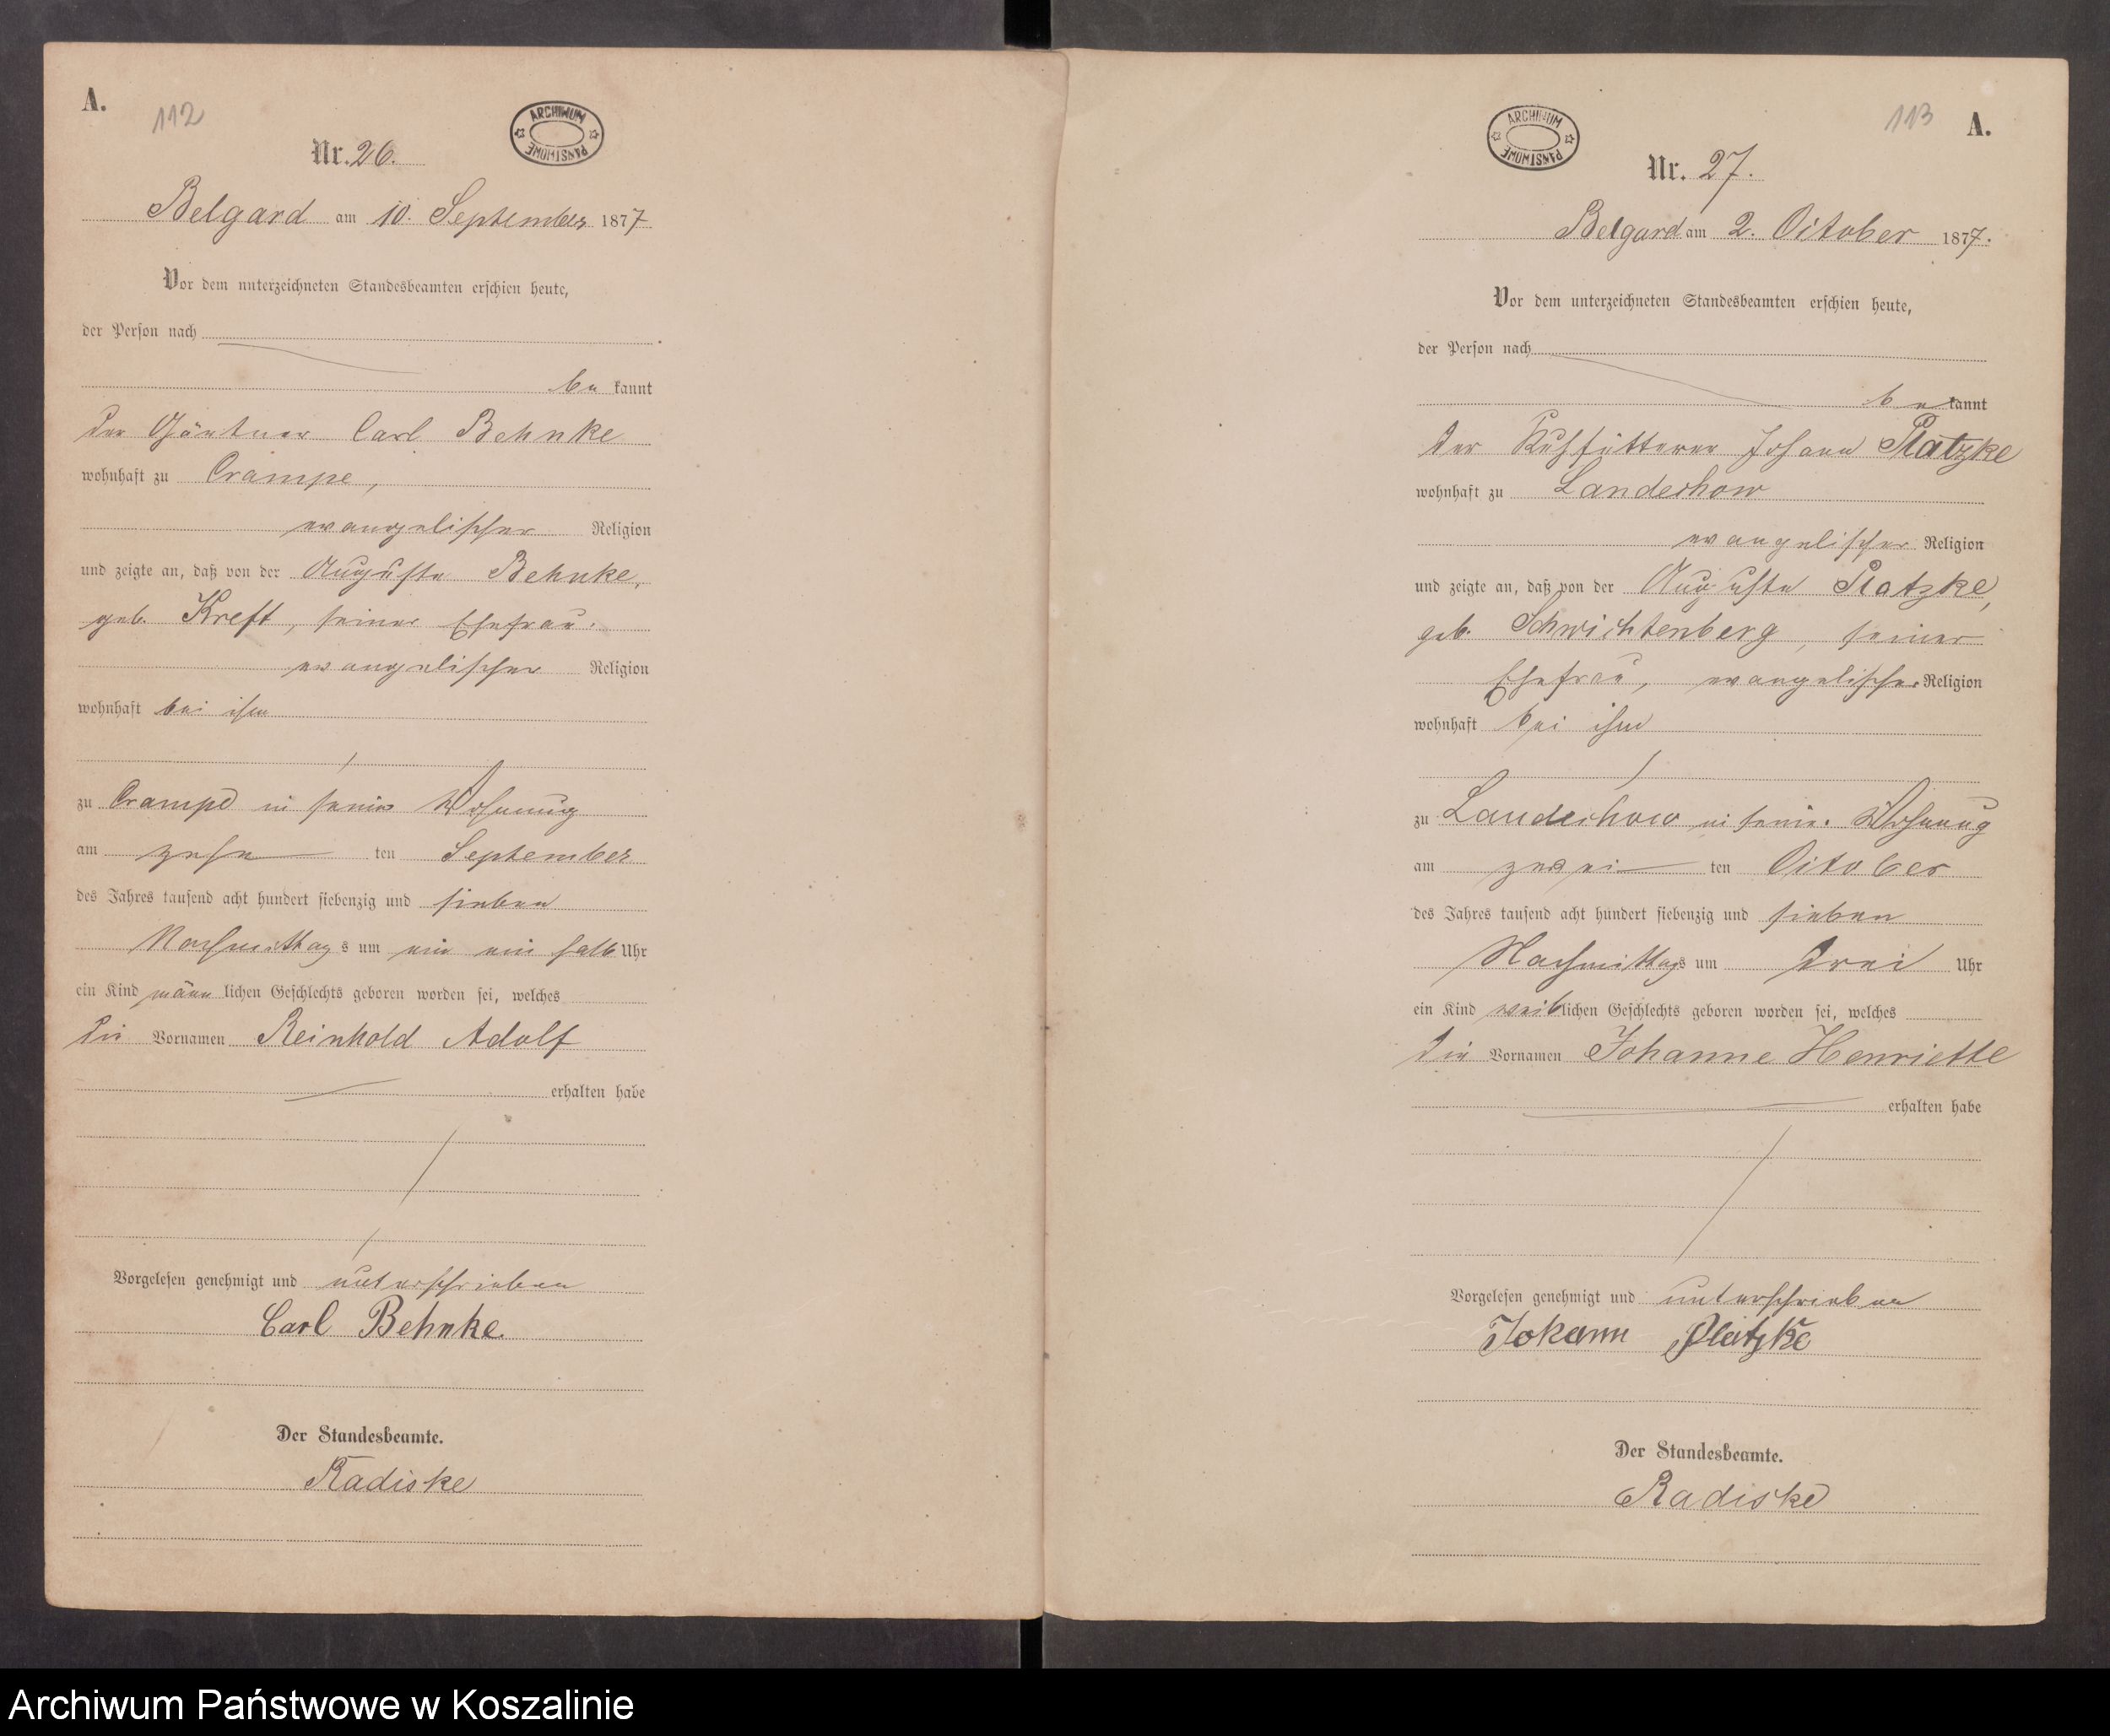 A.
112
ARCHIWUM PAŃSTWOWE
Nr. 26.
Belgard am 10. September 1877
Vor dem unterzeichneten Standesbeamten erschien heute,
der Person nach
be kannt
der Gärtner Carl Behnke
wohnhaft zu Crampe,
evangelischer Religion
und zeigte an, daß von der Auguste Behnke,
geb. Kreft, seiner Ehefrau.
evangelischer Religion
wohnhaft bei ihm
zu Crampe in seiner Wohnung
am zehn ten September
des Jahres tausend acht hundert siebenzig und sieben
Nachmittags um ein ein halb Uhr
ein Kind männ lichen Geschlechts geboren worden sei, welches
die Vornamen Reinhold Adolf
erhalten habe
Vorgelesen genehmigt und unterschrieben
Carl Behnke.
Der Standesbeamte.
Radiske
113
A.
ARCHIWUM PAŃSTWOWE
Nr. 27.
Belgard am 2. October 1877.
Vor dem unterzeichneten Standesbeamten erschien heute,
der Person nach
be kannt
der Kuhfütterer Johann Platzke
wohnhaft zu Landechow
evangelischer Religion
und zeigte an, daß von der Auguste Platzke,
geb. Schwichtenberg, seiner
Ehefrau, evangelischer Religion
wohnhaft bei ihm
zu Landechow in seiner Wohnung
am zwei ten October
des Jahres tausend acht hundert siebenzig und sieben
Nachmittags um drei Uhr
ein Kind weiblichen Geschlechts geboren worden sei, welches
die Vornamen Johanne Henriette
erhalten habe
Vorgelesen genehmigt und unterschrieben
Johann Platzke
Der Standesbeamte.
Radiske
Archiwum Państwowe w Koszalinie